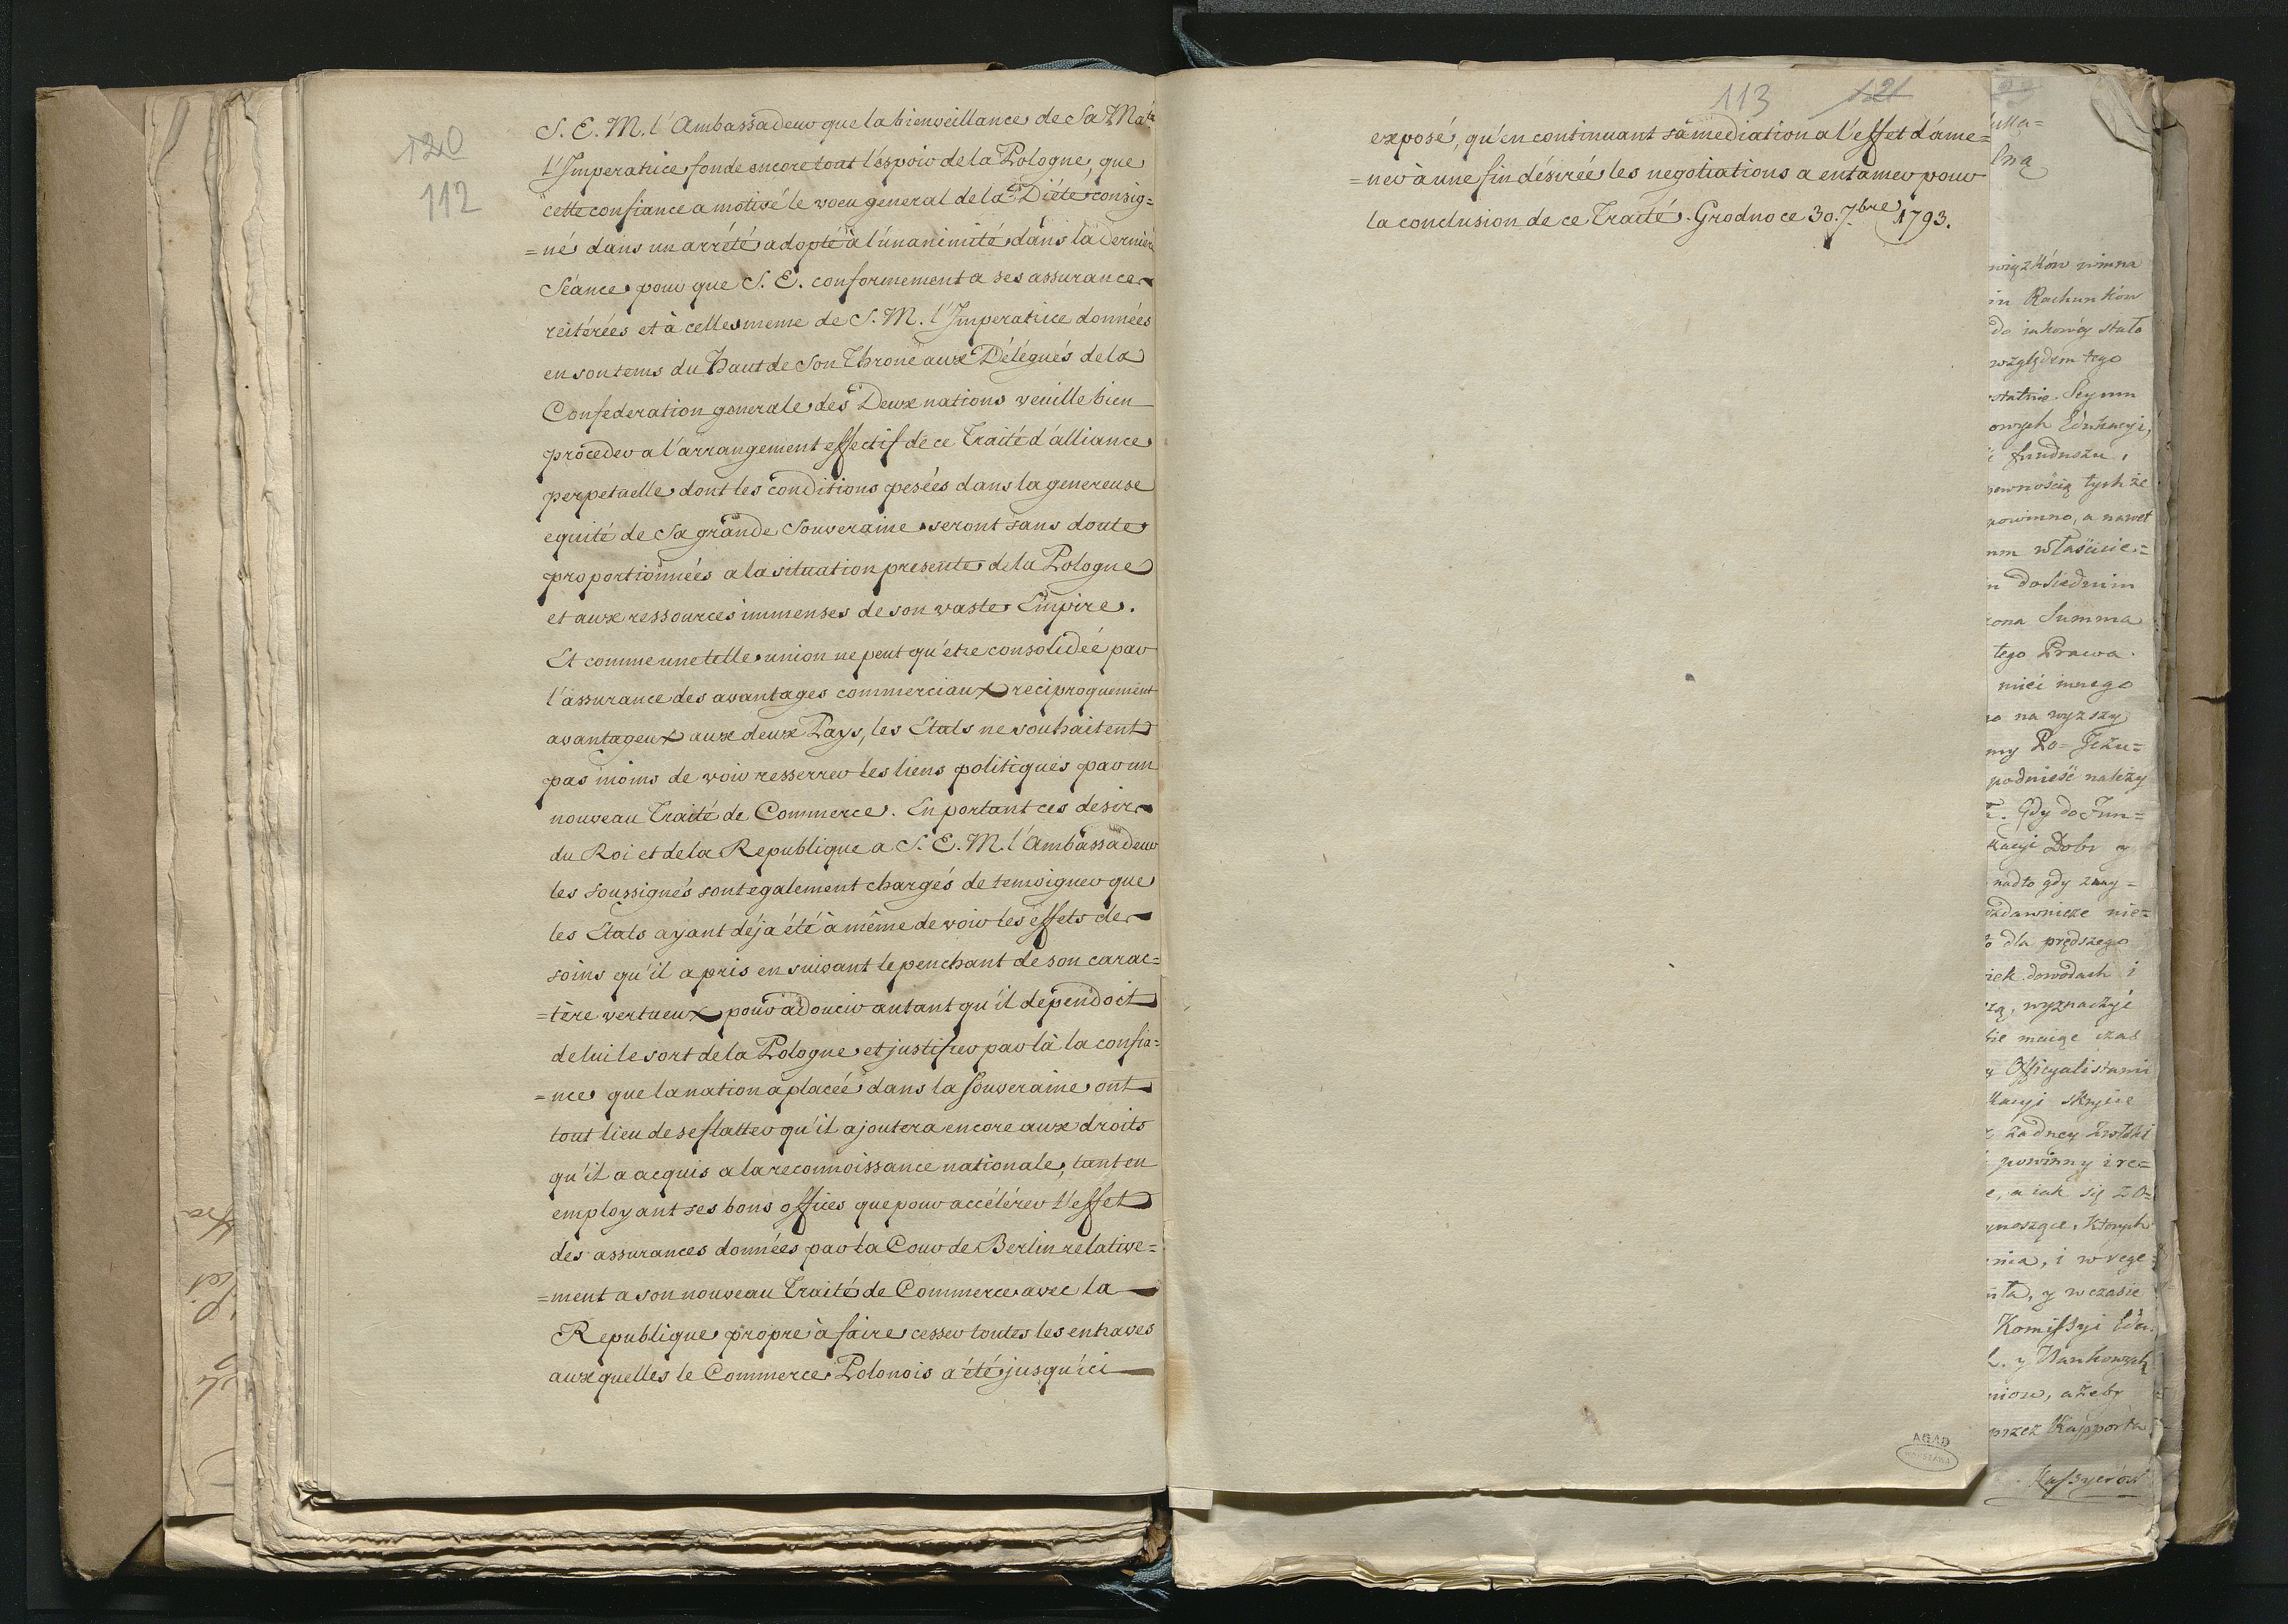 120
112
S. E. M. l'Ambassadeur que la bienveillance de Sa Maté
l'Imperatrice fonde encore tout l'espoir de la Pologne, que
cette confiance a motivé le voeu general de la Diéte consig=
=né dans un arrété adopté à l'unanimité dans la derniere
Séance pour que S. E. conformement a ses assurances
reitérées et à celles meme de S. M. l'Imperatrice données
en son tems du Haut de Son Throne aux Délégués de la
Confederation generale des Deux nations veuille bien
procéder a l'arrangement effectif de ce Traité d'alliance
perpetuelle dont les conditions pesées dans la genereuse
equité de Sa grande Souveraine seront sans doute
proportionnées a la situation presente de la Pologne
et aux ressources immenses de son vaste Empire.
Et comme une telle union ne peut qu'étre consolidée par
l'assurance des avantages commerciaux reciproquement
avantageux aux deux Pays, les Etats ne souhaitent
pas moins de voir resserrer les liens politiques par un
nouveau Traité de Commerce. En portant ces desirs
du Roi et de la Republique a S. E. M. l'Ambassadeur
les soussignés sont egalement chargés de temoigner que
les Etats ayant déja été à même de voir les effets des
soins qu'il a pris en suivant le penchant de son carac=
=tère vertueux pour adoucir autant qu'il dépendoit
de lui le sort de la Pologne et justifier par là la confia=
=nce que la nation a placée dans la Souveraine ont
tout lieu de se flatter qu'il ajoutera encore aux droits
qu'il a acquis a la reconnoissance nationale, tant en
employant ses bons offices que pour accélérer l'effet
des assurances données par la Cour de Berlin relative=
=ment a son nouveau Traité de Commerce avec la
Republique propre à faire cesser toutes les entraves
auxquelles le Commerce Polonois a été jusqu'ici
113 121
exposé, qu'en continuant sa mediation a l'effet d'ame=
=ner à une fin désirée les negotiations a entamer pour
la conclusion de ce Traité. Grodno ce 30. 7bre 1793.
AGAD
winna
Rachunków
stało
względem tego
Seymu
Edukacyi,
funduszu,
tychże
powinno, a nawet
Summa
tego Prawa.
innego
na wyższy
należy
Gdy do Fun=
Dobr y
nadto gdy
dla prędszego
dowodach i
czas
Officyalistami
żadney
powinny i re=
a iak się
Których
y w czasie
Komissyi Edu.
ażeby
przez Rapporta
Kassyerów